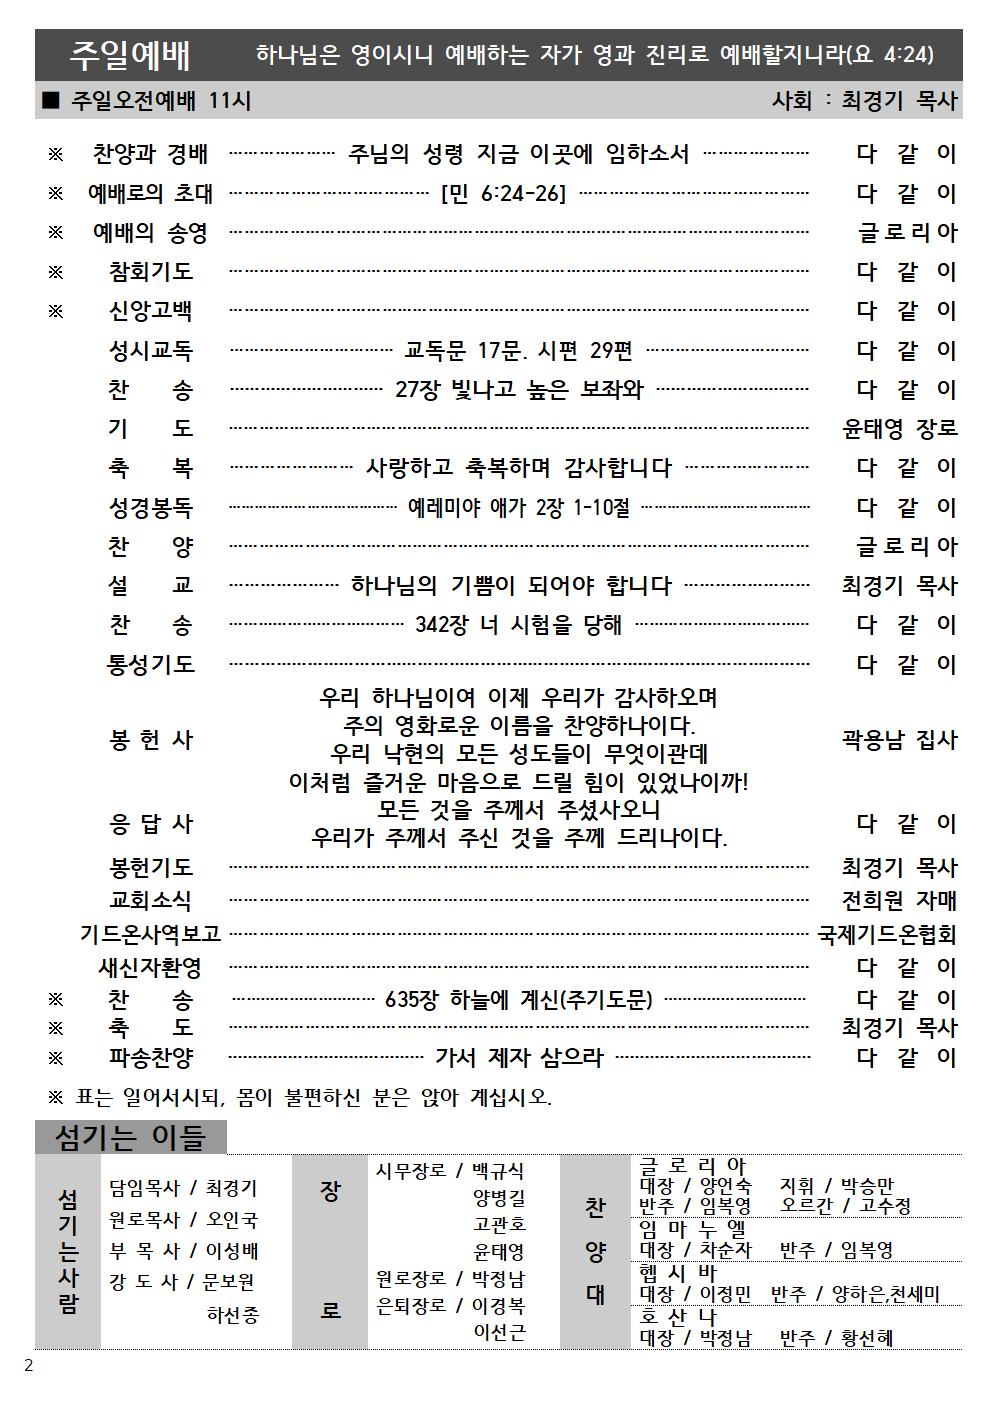 주일예배 하나님은 영이시니 예배하는 자가 영과 진리로 예배할지니라(요 4:24)
■ 주일오전예배 11시 사회 : 최경기 목사
※ 찬양과 경배 ………………… 주님의 성령 지금 이곳에 임하소서 ………………… 다 같 이
※ 예배로의 초대 ………………………………… [민 6:24-26] ……………………………………… 다 같 이
※ 예배의 송영 …………………………………………………………………………………………………… 글로리아
※ 참회기도 …………………………………………………………………………………………………… 다 같 이
※ 신앙고백 …………………………………………………………………………………………………… 다 같 이
성시교독 …………………………… 교독문 17문. 시편 29편 …………………………… 다 같 이
찬 송 ………………………… 27장 빛나고 높은 보좌와 ………………………… 다 같 이
기 도 …………………………………………………………………………………………………… 윤태영 장로
축 복 …………………… 사랑하고 축복하며 감사합니다 …………………… 다 같 이
성경봉독 …………………………… 예레미야 애가 2장 1-10절 …………………………… 다 같 이
찬 양 …………………………………………………………………………………………………… 글로리아
설 교 ………………… 하나님의 기쁨이 되어야 합니다 …………………… 최경기 목사
찬 송 …………………………… 342장 너 시험을 당해 …………………………… 다 같 이
통성기도 …………………………………………………………………………………………………… 다 같 이
우리 하나님이여 이제 우리가 감사하오며
주의 영화로운 이름을 찬양하나이다.
봉 헌 사 우리 낙현의 모든 성도들이 무엇이관데 곽용남 집사
이처럼 즐거운 마음으로 드릴 힘이 있었나이까!
모든 것을 주께서 주셨사오니
응 답 사 우리가 주께서 주신 것을 주께 드리나이다. 다 같 이
봉헌기도 …………………………………………………………………………………………………… 최경기 목사
교회소식 …………………………………………………………………………………………………… 전희원 자매
기드온사역보고 …………………………………………………………………………………………………… 국제기드온협회
새신자환영 …………………………………………………………………………………………………… 다 같 이
※ 찬 송 ……………………… 635장 하늘에 계신(주기도문) ……………………… 다 같 이
※ 축 도 …………………………………………………………………………………………………… 최경기 목사
※ 파송찬양 ………………………………… 가서 제자 삼으라 ………………………………… 다 같 이
※ 표는 일어서시되, 몸이 불편하신 분은 앉아 계십시오.
섬기는 이들
섬기는사람
담임목사 / 최경기
원로목사 / 오인국
부 목 사 / 이성배
강 도 사 / 문보원
하선종
장로
시무장로 / 백규식
양병길
고관호
윤태영
원로장로 / 박정남
은퇴장로 / 이경복
이선근
찬양대
글 로 리 아
대장 / 양언숙 지휘 / 박승만
반주 / 임복영 오르간 / 고수정
임 마 누 엘
대장 / 차순자 반주 / 임복영
헵 시 바
대장 / 이정민 반주 / 양하은,천세미
호 산 나
대장 / 박정남 반주 / 황선혜
2